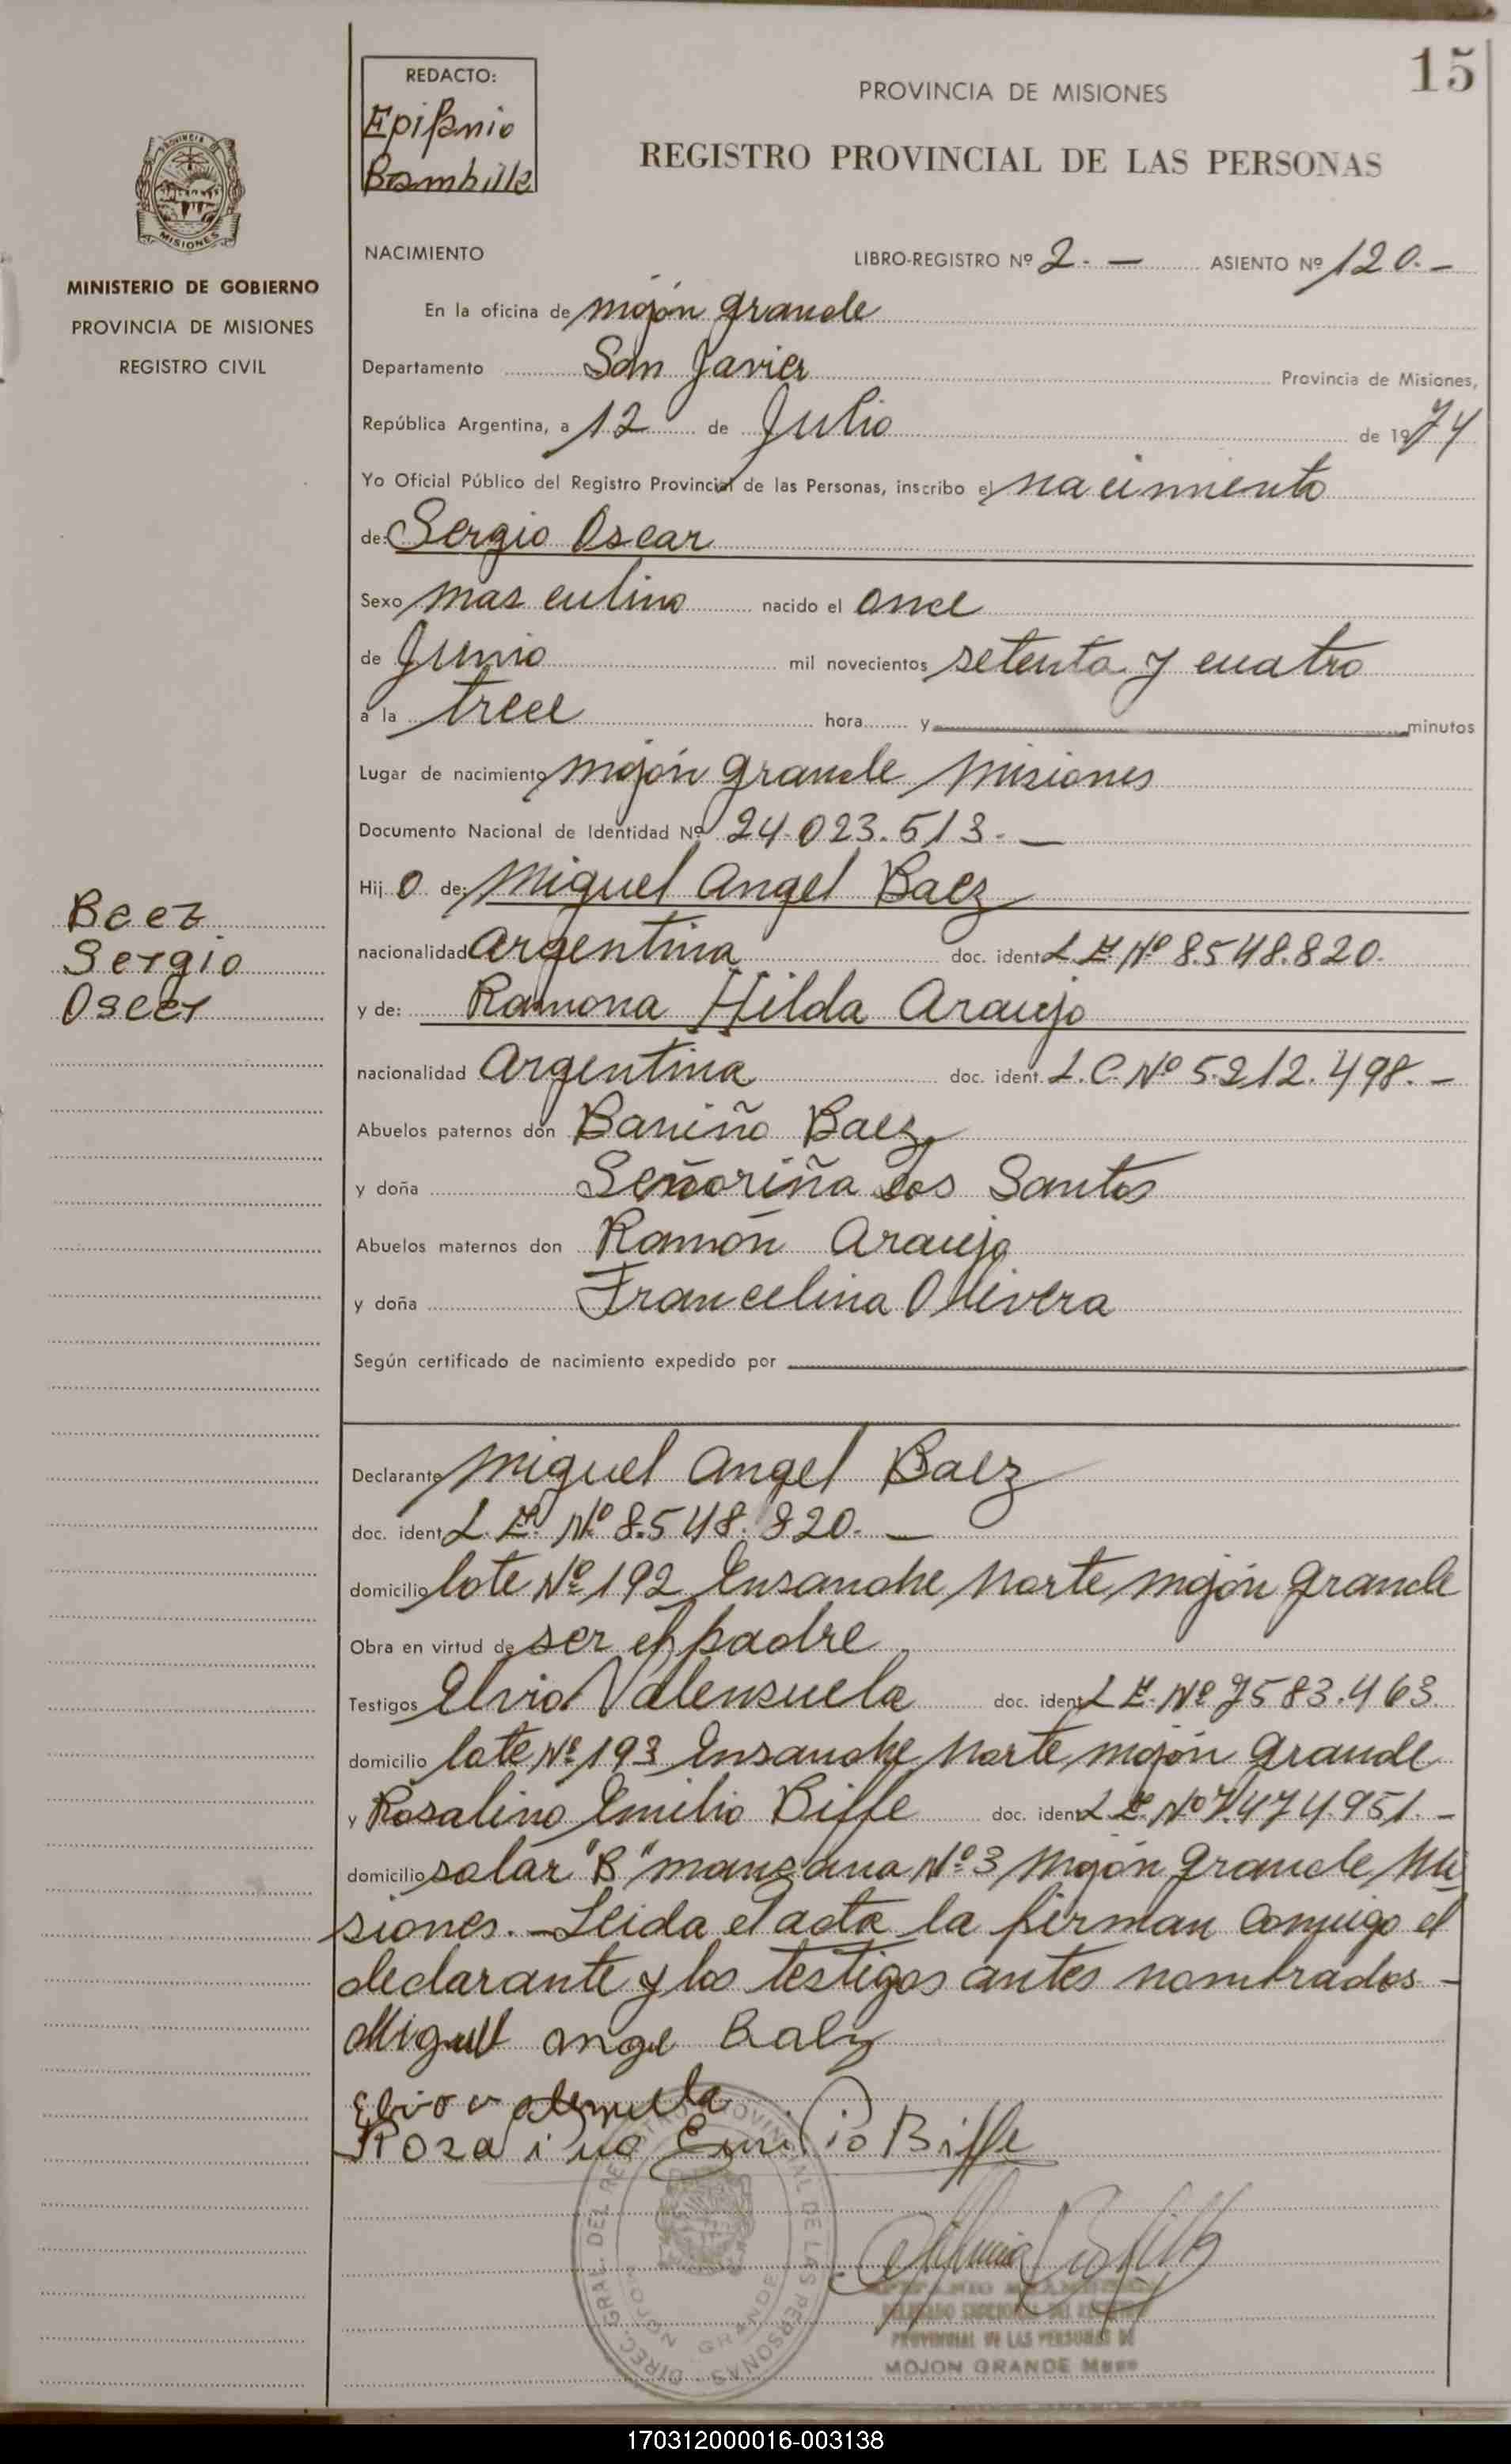 15
REDACTO:
Epifanio
Bambilla
PROVINCIA DE MISIONES
REGISTRO PROVINCIAL DE LAS PERSONAS
MISIONES
MINISTERIO DE GOBIERNO
PROVINCIA DE MISIONES
REGISTRO CIVIL
NACIMIENTO LIBRO-REGISTRO Nº 2.- ASIENTO Nº 120.-
En la oficina de mojón grande
Departamento San Javier Provincia de Misiones,
República Argentina, a 12 de Julio de 1974
Yo Oficial Público del Registro Provincial de las Personas, inscribo el nacimiento
de: Sergio Oscar
Sexo masculino nacido el once
de Junio mil novecientos setenta y cuatro
a la trece hora y minutos
Lugar de nacimiento mojón grande Misiones
Documento Nacional de Identidad Nº 24.023.513.-
Hij o de: Miguel Angel Baez
Baez
Sergio
Oscar
nacionalidad argentina doc. ident. L E. Nº 8.548.820.
y de: Ramona Hilda Araujo
nacionalidad Argentina doc. ident. L.C. Nº 5.212.498.-
Abuelos paternos don Baniño Baez
y doña Señoriña dos Santos
Abuelos maternos don Ramón Araujo
y doña Francelina Olivera
Según certificado de nacimiento expedido por
Declarante Miguel Angel Baez
doc. ident. L. E. Nº 8.548.820.-
domicilio lote Nº 192 Ensanche Norte mojón grande
Obra en virtud de ser el padre
Testigos Elvio Valensuela doc. ident. L E. Nº 7583.463
domicilio lote Nº 193 Ensanche Norte mojón grande
y Rosalino Emilio Biffe doc. ident. L E. Nº 7.474.951.-
domicilio solar "B" manzana Nº 3 Mojón grande Mi
siones.-Leida el acta la firman conmigo el
declarante y los testigos antes nombrados-
Miguel angel Baez
Rosalino Emilio Biffe
DIREC. GRAL. DEL REGISTRO PROVINCIAL DE LAS PERSONAS
MOJON GRANDE
PROVINCIAL DE LAS PERSONAS DE
MOJON GRANDE
170312000016-003138